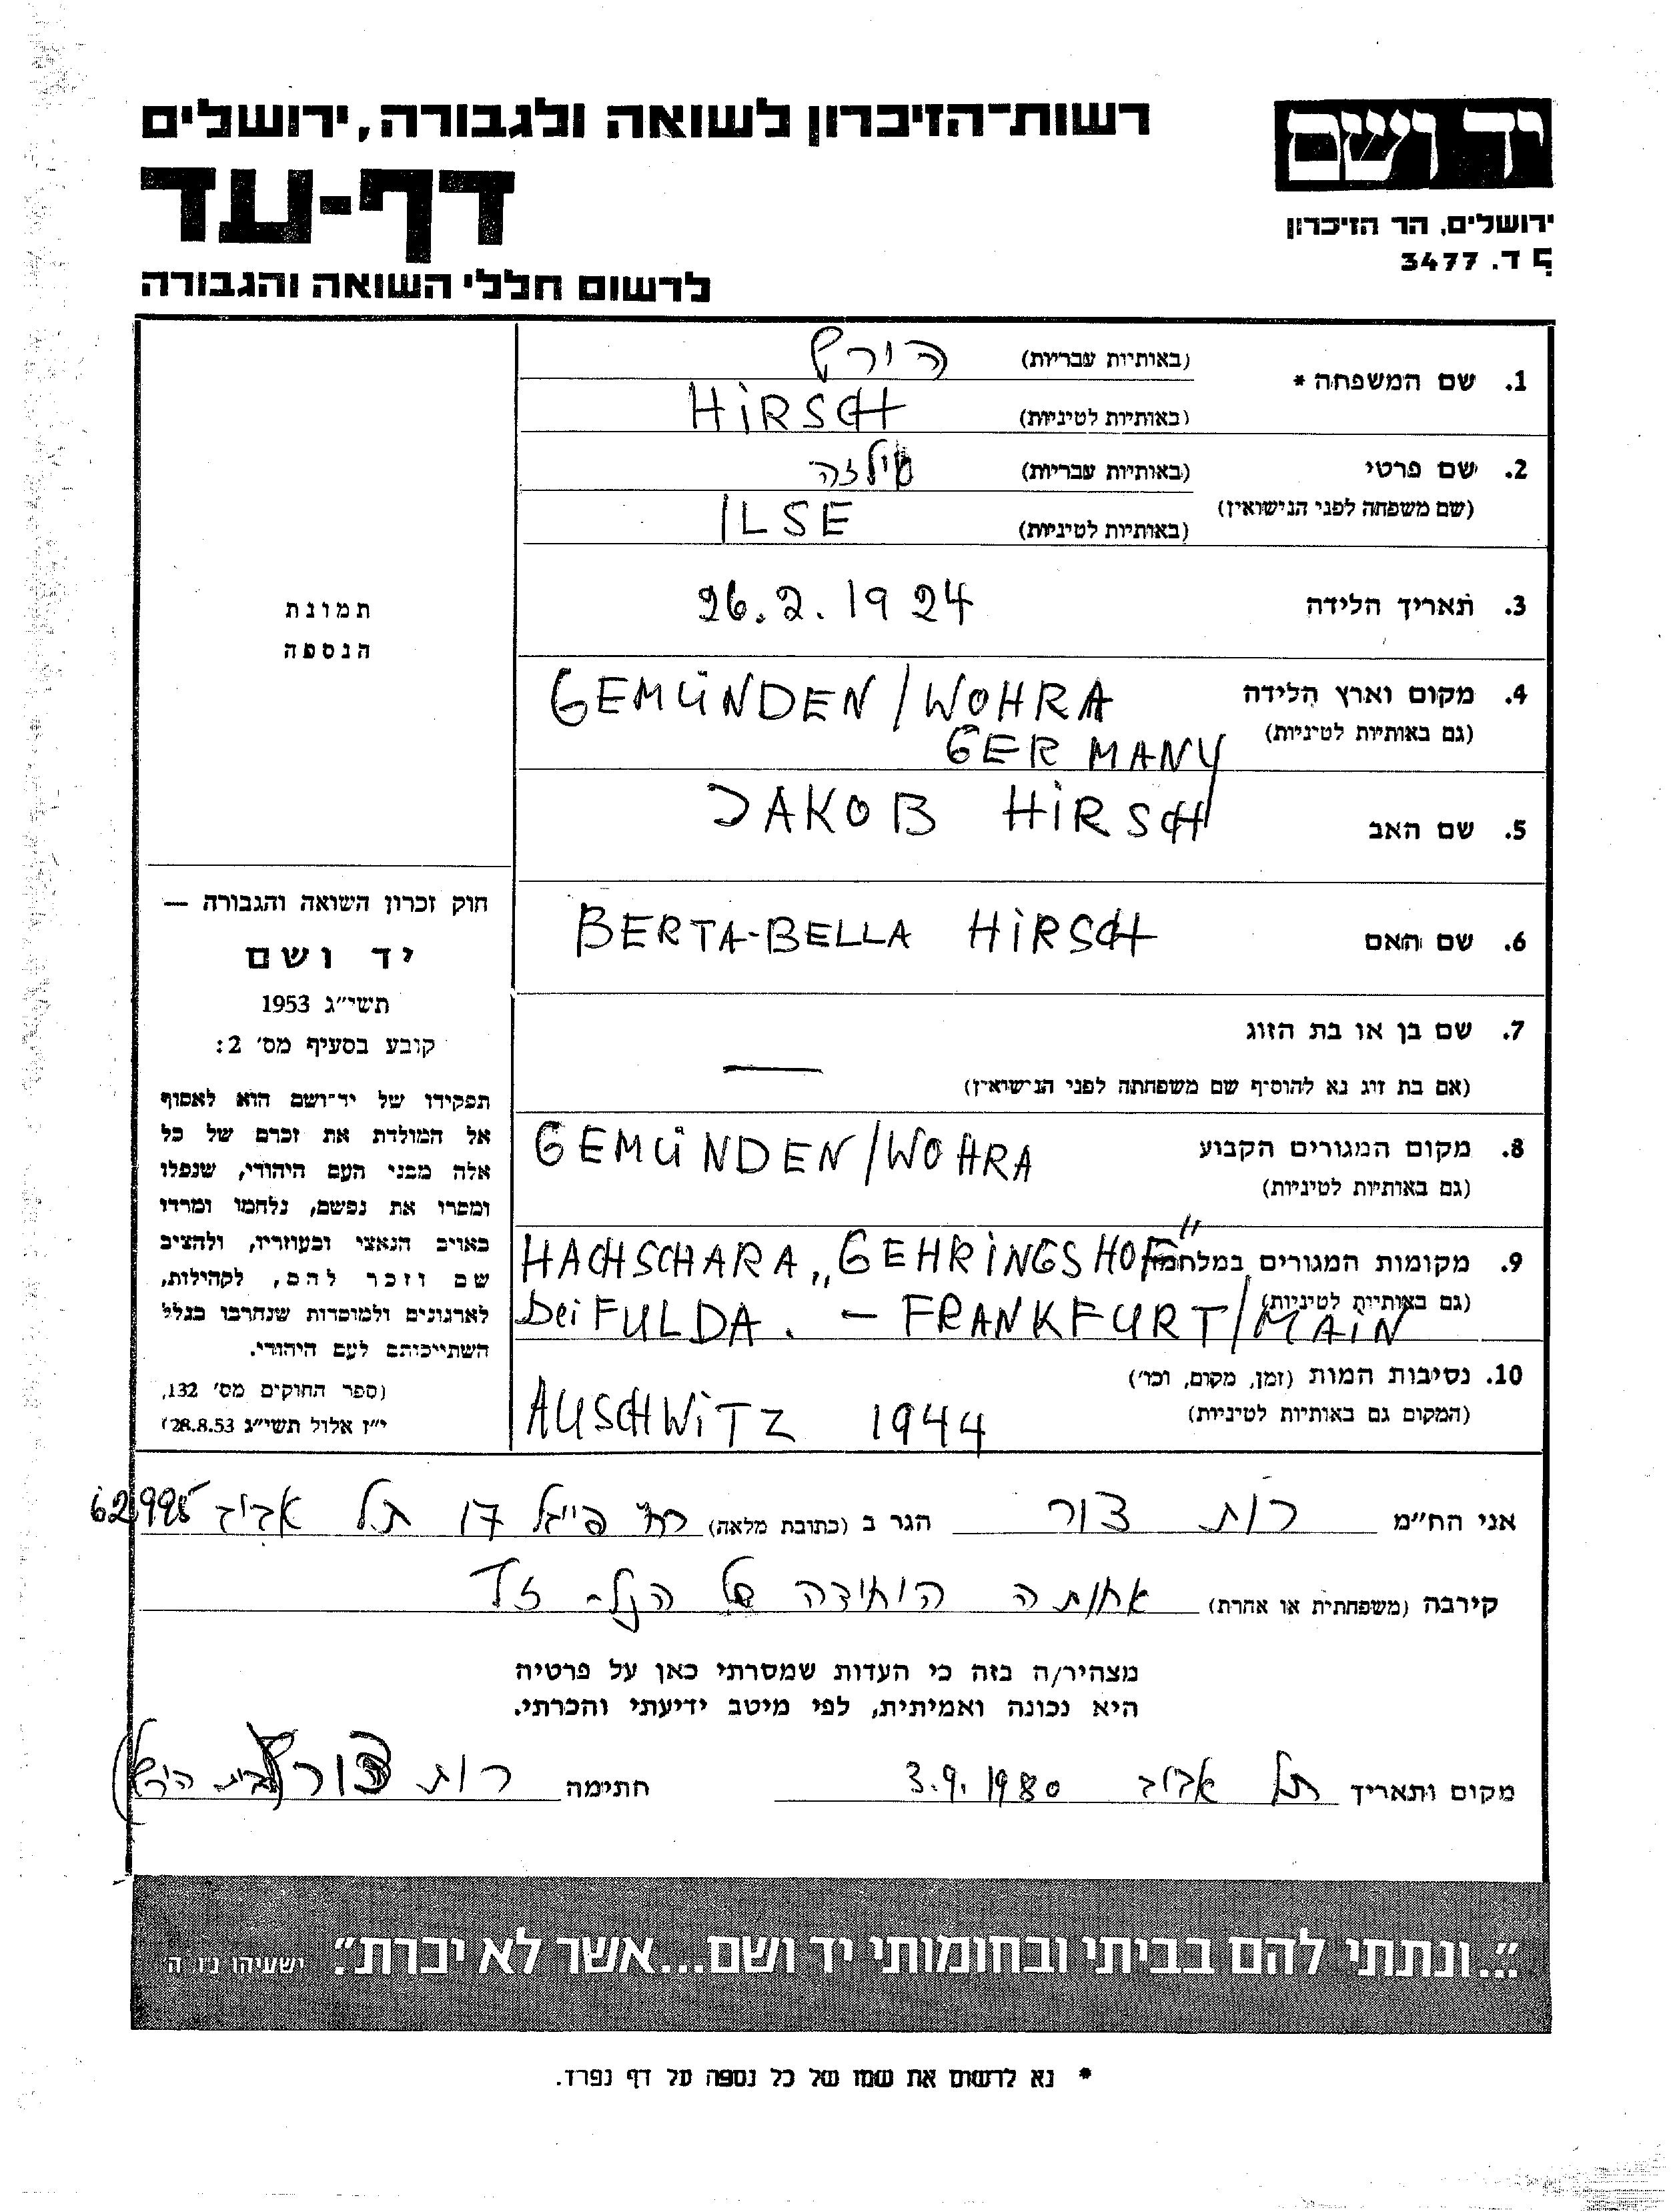 רשות־הזיכרון לשואה ולגבורה, ירושלים
יד ושם
דף-עד
ירושלים, הר הזיכרון
ת.ד. 3477
לרשום חללי השואה והגבורה
1. שם המשפחה *
(באותיות עבריות) הירש
(באותיות לטיניות) HIRSCH
2. שם פרטי
(שם משפחה לפני הנישואין)
(באותיות עבריות) אילזה
(באותיות לטיניות) ILSE
3. תאריך הלידה 26.2.1924
4. מקום וארץ הלידה GEMÜNDEN/WOHRA
(גם באותיות לטיניות) GERMANY
5. שם האב JAKOB HIRSCH
6. שם האם BERTA-BELLA HIRSCH
7. שם בן או בת הזוג —
(אם בת זוג נא להוסיף שם משפחתה לפני הנישואין)
8. מקום המגורים הקבוע GEMÜNDEN/WOHRA
(גם באותיות לטיניות)
9. מקומות המגורים במלחמה HACHSCHARA „GEHRINGSHOF"
(גם באותיות לטיניות) bei FULDA. – FRANKFURT/MAIN
10. נסיבות המות (זמן, מקום, וכו')
(המקום גם באותיות לטיניות) AUSCHWITZ 1944
תמונת
הנספה
חוק זכרון השואה והגבורה —
יד ושם
תשי"ג 1953
קובע בסעיף מס' 2:
תפקידו של יד־ושם הוא לאסוף
אל המולדת את זכרם של כל
אלה מבני העם היהודי, שנפלו
ומסרו את נפשם, נלחמו ומרדו
באויב הנאצי ובעוזריו, ולהציב
שם וזכר להם, לקהילות,
לארגונים ולמוסדות שנחרבו בגלל
השתייכותם לעם היהודי.
(ספר החוקים מס' 132,
י"ז אלול תשי"ג 28.8.53)
אני הח"מ רות צור הגר ב (כתובת מלאה) רח' פייבל 17 תל אביב 62995
קירבה (משפחתית או אחרת) אחותה היחידה של הנ"ל ז"ל
מצהיר/ה בזה כי העדות שמסרתי כאן על פרטיה
היא נכונה ואמיתית, לפי מיטב ידיעתי והכרתי.
מקום ותאריך תל אביב 3.9.1980 חתימה רות צור (בית הירש)
"...ונתתי להם בביתי ובחומותי יד ושם...אשר לא יכרת". ישעיהו נ"ו, ה'
* נא לרשום את שמו של כל נספה על דף נפרד.